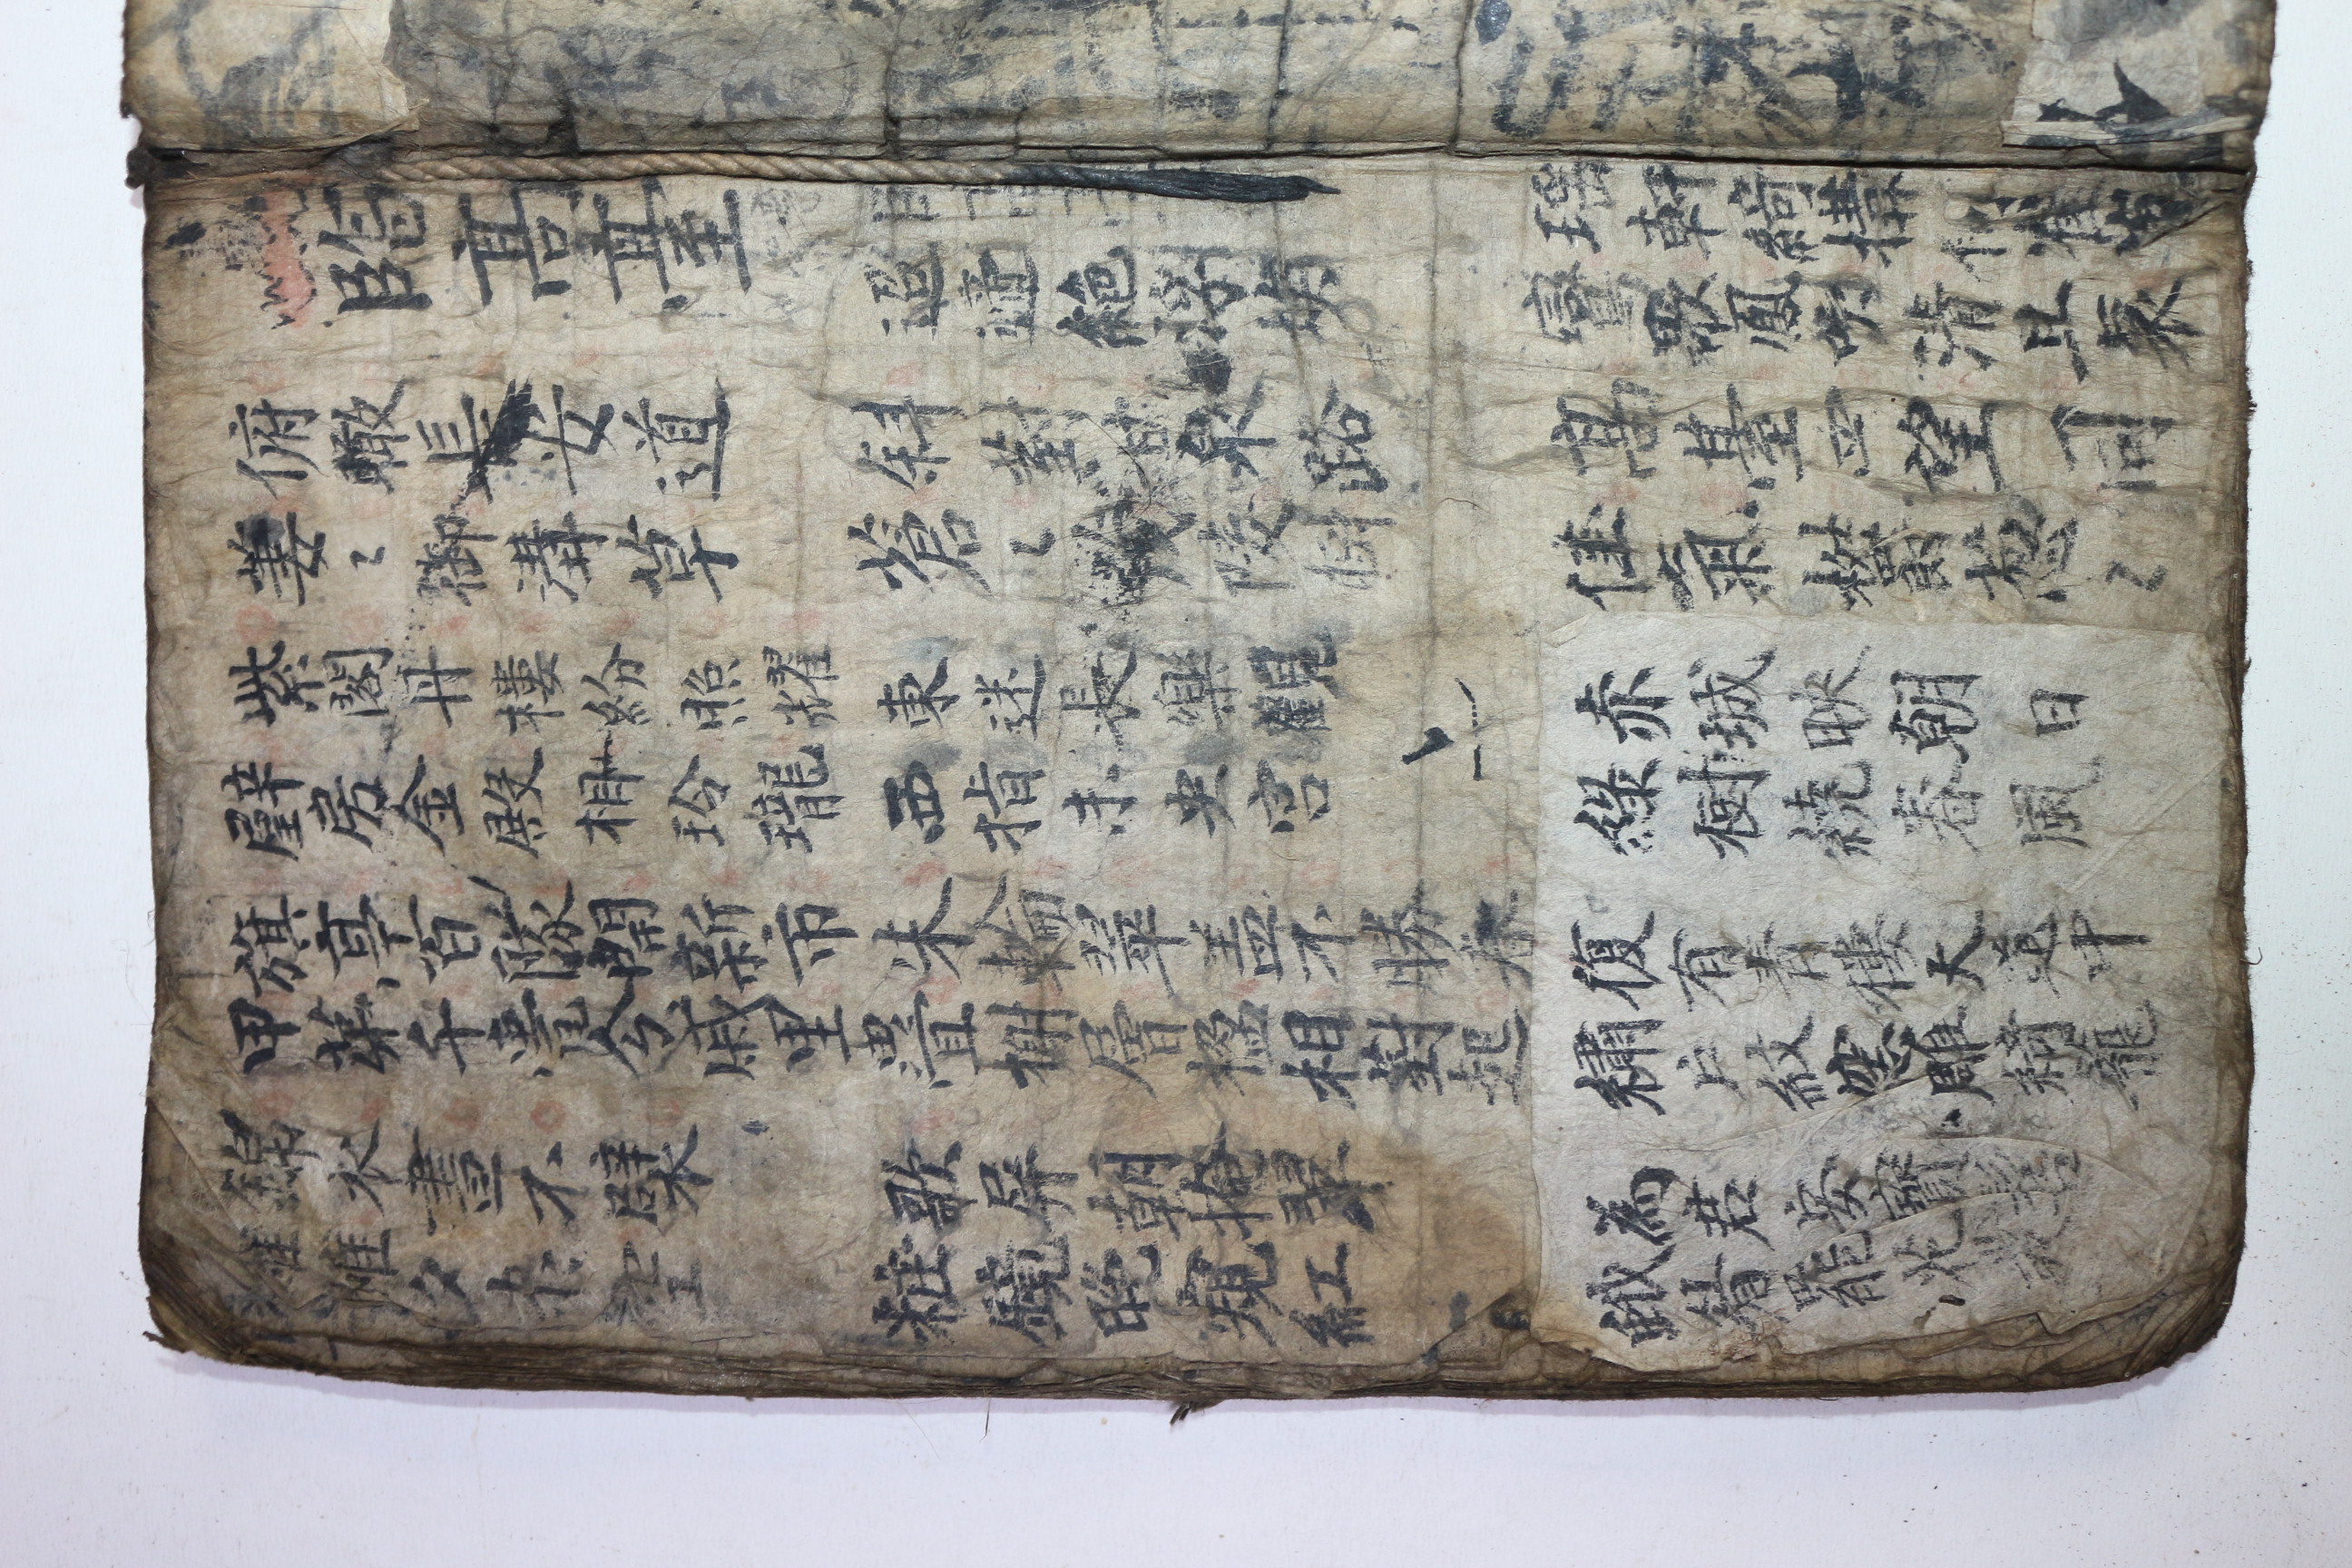 臨高臺
迢遞絕浮埃
瑶軒綺構何崔嵬
鸞歌鳳吹清且哀
俯瞰長安道
萋〻御溝草
斜對甘泉路
蒼〻茂陵樹
高臺四望同
佳氣欝葱〻
紫閣丹樓紛照耀
璧房金殿相玲瓏
東迷長樂觀
西指未央宮
赤城映朝日
綠樹繞春風
旗亭百隊開新市
甲苐千甍分戚里
朱輪翠盖不勝春
疊榭層楹相對起
復有青樓大道中
繡戶紋窓雕綺蘢
錦衣晝不襞
羅帷夕未空
歌屏朝掩翠
粧鏡晚窺紅
為君安寶髻
蛾眉罷花叢